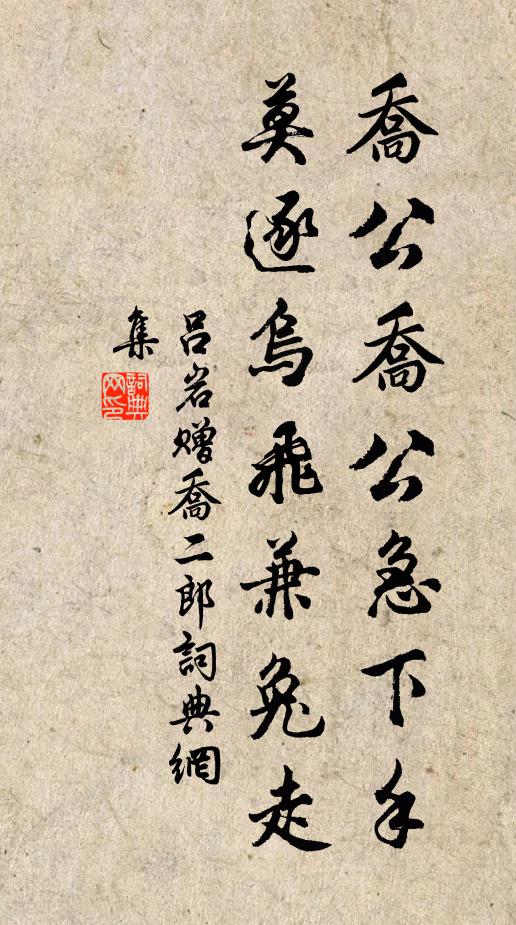 喬公喬公急下手
莫逐烏飛兼兔走
呂岩贈喬二郎詞典網
集
詞典網印